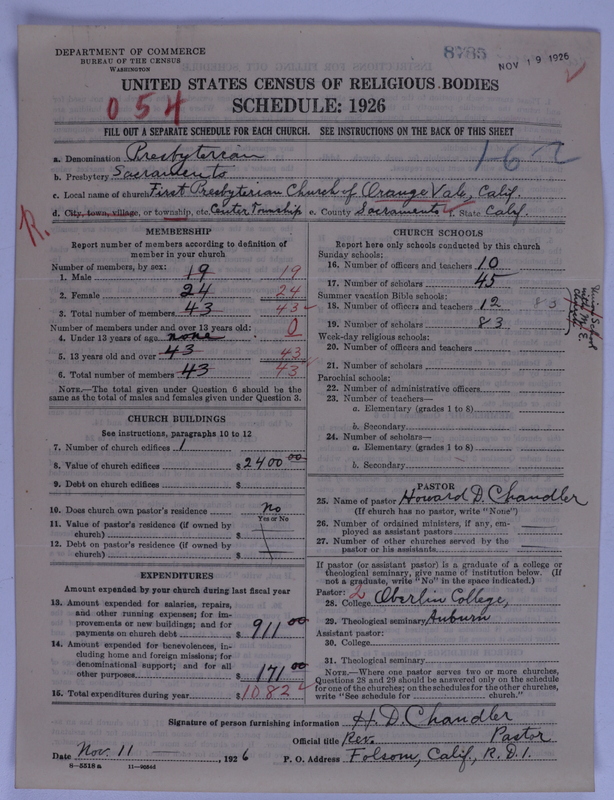 DEPARTMENT OF COMMERCE
BUREAU OF THE CENSUS
WASHINGTON
8785
NOV 19 1926
UNITED STATES CENSUS OF RELIGIOUS BODIES
054
SCHEDULE: 1926
FILL OUT A SEPARATE SCHEDULE FOR EACH CHURCH. SEE INSTRUCTIONS ON THE BACK OF THIS SHEET
162
a. Denomination Presbyterian
b. Presbytery Sacramento
c. Local name of church First Presbyterian Church of Orange Vale, Calif.
d. City, town, village, or township, etc. Center Township e. County Sacramento f. State Calif.
R.
MEMBERSHIP
Report number of members according to definition of
member in your church
Number of members, by sex:
1. Male 19 19
2. Female 24 24
3. Total number of members 43 43
Number of members under and over 13 years old:
4. Under 13 years of age none 0
5. 13 years old and over 43 43
6. Total number of members 43 43
NOTE.—The total given under Question 6 should be
same as the total of males and females given under Question 3.
CHURCH BUILDINGS
See instructions, paragraphs 10 to 12
7. Number of church edifices 1
8. Value of church edifices $2400 00
9. Debt on church edifices $
10. Does church own pastor's residence? No
Yes or No
11. Value of pastor's residence (if owned by
church) $
12. Debt on pastor's residence (if owned by
church) $
EXPENDITURES
Amount expended by your church during last fiscal year
13. Amount expended for salaries, repairs,
and other running expenses; for im-
provements or new buildings; and for
payments on church debt $911 00
14. Amount expended for benevolences, in-
cluding home and foreign missions; for
denominational support; and for all
other purposes $171 00
15. Total expenditures during year $1082
CHURCH SCHOOLS
Report here only schools conducted by this church
Sunday schools:
16. Number of officers and teachers 10
17. Number of scholars 45
Summer vacation Bible schools:
18. Number of officers and teachers 12 83
19. Number of scholars 83
Union School
with M. E.
Church
Week-day religious schools:
20. Number of officers and teachers
21. Number of scholars
Parochial schools:
22. Number of administrative officers
23. Number of teachers—
a. Elementary (grades 1 to 8)
b. Secondary
24. Number of scholars—
a. Elementary (grades 1 to 8)
b. Secondary
PASTOR
25. Name of pastor Howard D. Chandler
(If church has no pastor, write "None")
26. Number of ordained ministers, if any, em-
ployed as assistant pastors
27. Number of other churches served by the
pastor or his assistants
If pastor (or assistant pastor) is a graduate of a college or
theological seminary, give name of institution below. (If
not a graduate, write "No" in the space indicated.)
Pastor: 2
28. College Oberlin College,
29. Theological seminary Auburn
Assistant pastor:
30. College
31. Theological seminary
NOTE.—Where one pastor serves two or more churches,
Questions 28 and 29 should be answered only on the schedule
for one of the churches; on the schedules for the other churches,
write "See schedule for church."
Signature of person furnishing information H. D. Chandler
Official title Rev. Pastor
Date Nov. 11, 1926 P. O. Address Folsom, Calif., R. D. 1.
8—5518a 11—9054d